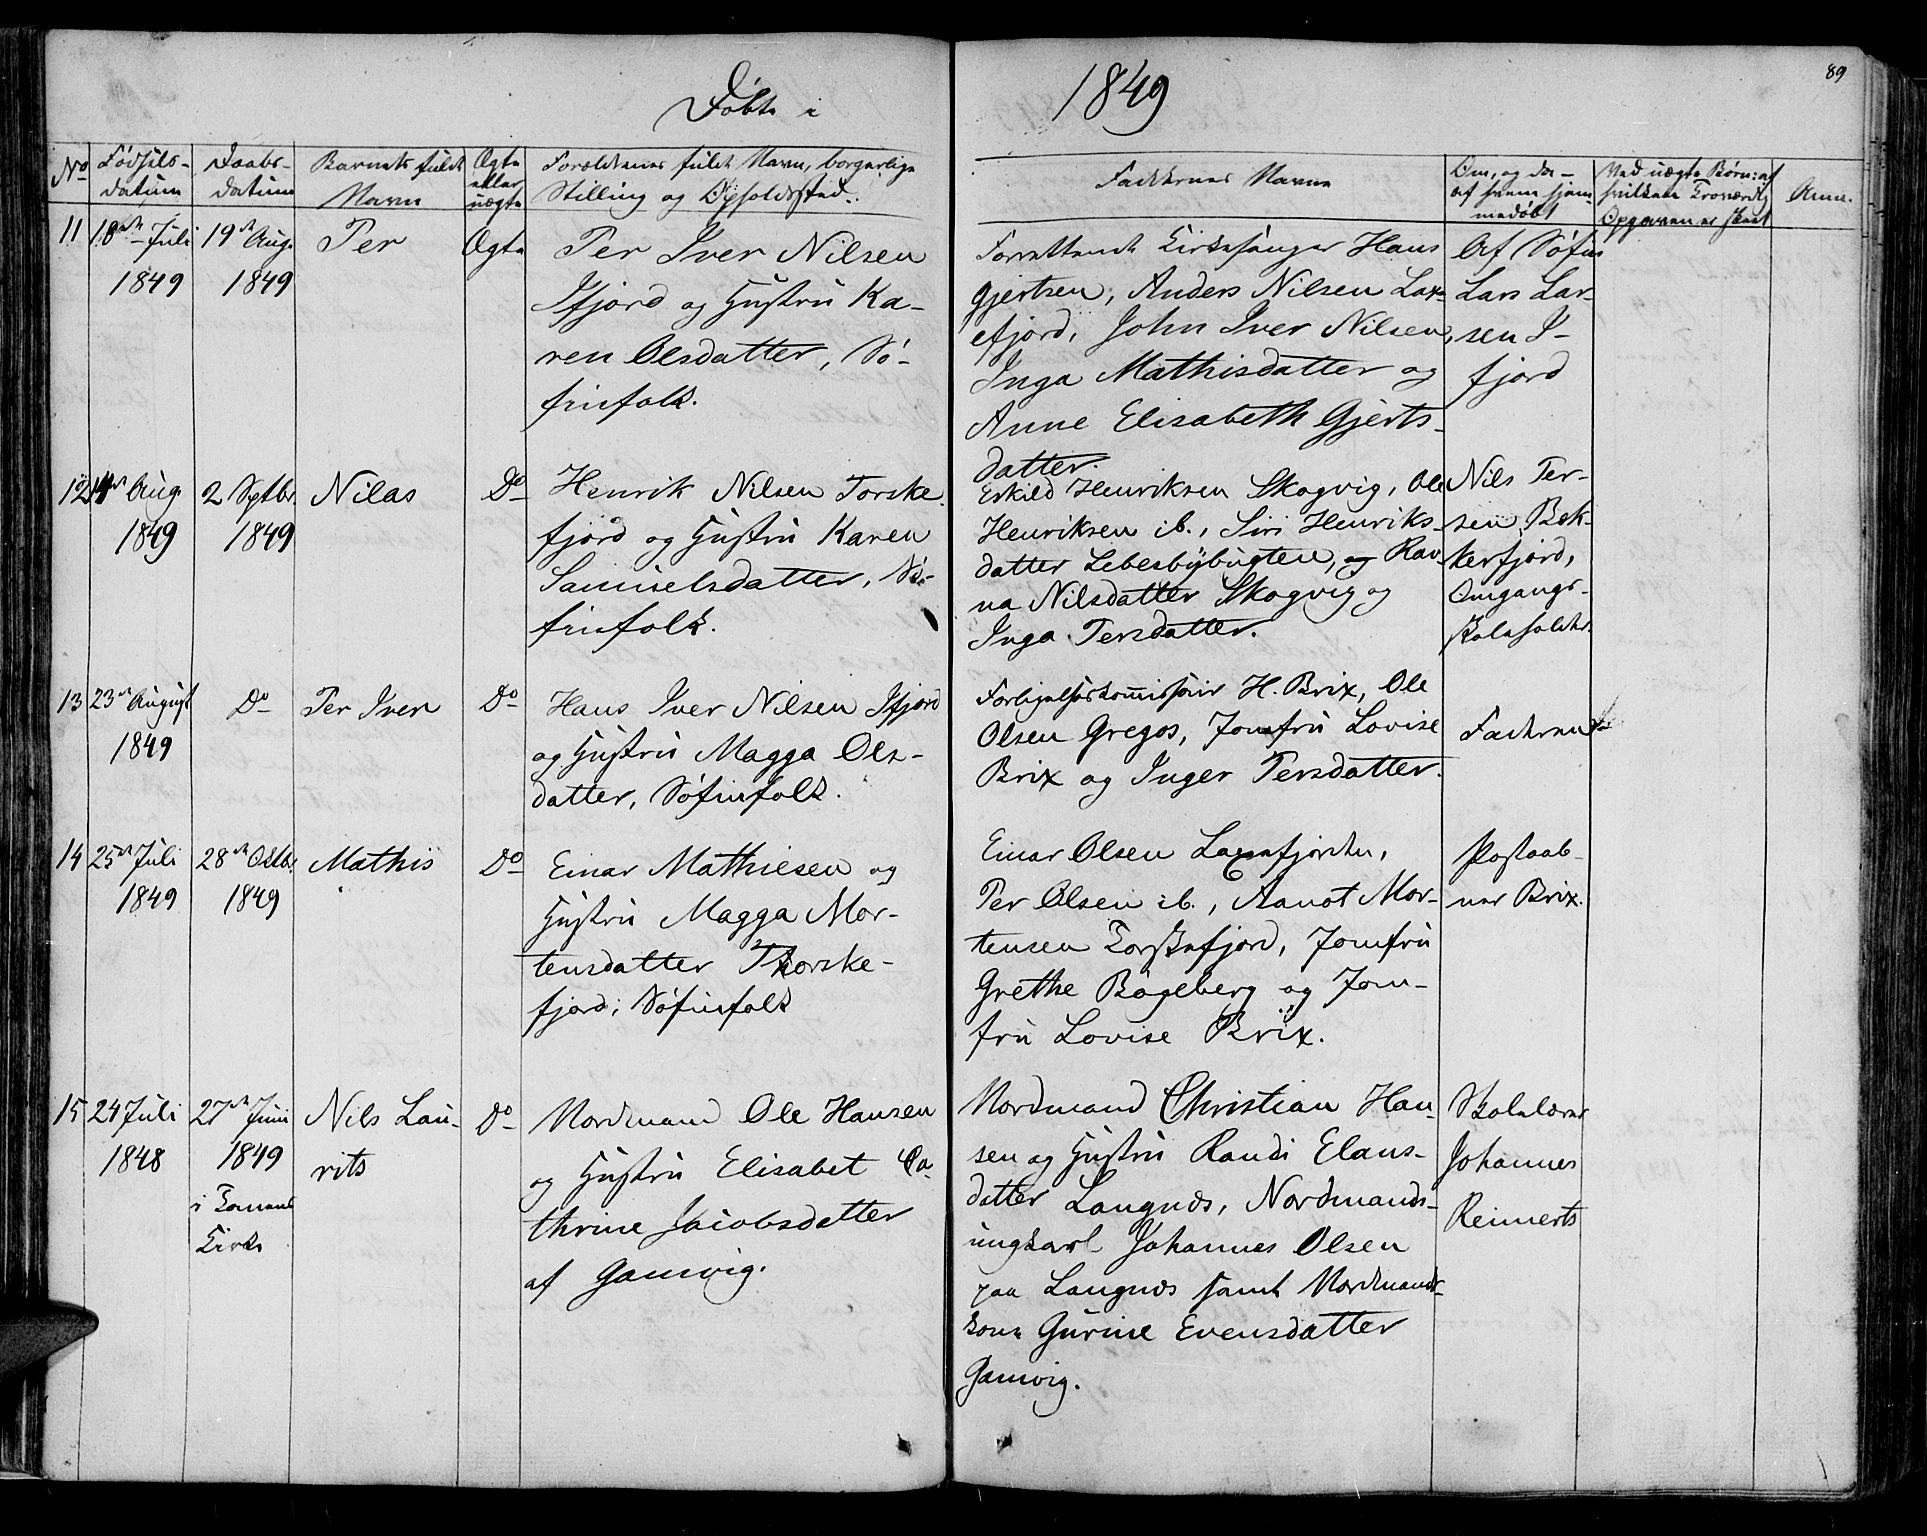 Døbte i 1849
89
No
Fødsels-
datum
Daabs-
datum
Barnets fulde
Navn
Ægte
eller
uægte
Forældrenes fulde Navn, borgerlige
Stilling og Opholdssted.
Faddernes Navne
Om, og da
af hvem hjem-
medøbt
Ved uægte Børn: af
hvilken Troværdig
Opgaven er skeet
Anm.
11
18de Juli
1849
19de Aug.
1849
Per
Ægte
Per Iver Nilsen
Ifjord og Hustru Ka-
ren Olsdatter, Sø-
finfolk.
Forrettende Kirkesanger Hans
Gjertsen, Anders Nilsen Lax-
efjord, John Iver Nilsen,
Inga Mathisdatter og
Anne Elisabeth Gjerts-
datter.
Af Søfin
Lars Lar-
sen I-
fjord
12
Aug.
1849
2 Sptbr.
1849
Nilas
Do
Henrik Nilsen Torske-
fjord og Hustru Karen
Samuelsdatter, Sø-
finfolk.
Eskild Henriksen Skogvig, Ole
Henriksen ib., Siri Henriks-
datter Lebesbybugten, og Rav-
na Nilsdatter Skogvig og
Inga Persdatter.
Nils Per-
sen Bek-
kerfjord,
Omgangs-
skoleholder.
13
23de August
1849
Do
Per Iver
Do
Hans Iver Nilsen Ifjord
og Hustru Magga Ols-
datter, Søfinfolk.
Forligelseskommissair H. Brix, Ole
Olsen Gregos, Jomfru Lovise
Brix og Inger Persdatter.
Faderen
14
25de Juli
1849
28de Oktbr.
1849
Mathis
Do
Einar Mathiesen og
Hustru Magga Mor-
tensdatter Thorske-
fjord; Søfinfolk
Einar Olsen Laxefjorden,
Per Olsen ib., Aanot Mor-
tensen Torskefjord, Jomfru
Grethe Bøgeberg og Jom-
fru Lovise Brix.
Postaab-
ner Brix.
15
24 Juli
1848
27de Juni
1849
i Tanens
Kirke
Nils Lau-
rits
Do
Nordmand Ole Hansen
og Hustru Elisabet Ca-
thrine Jacobsdatter
af Gamvig.
Nordmand Christian Han-
sen og Hustru Randi Elans-
datter Langnæs, Nordmands-
ungkarl Johannes Olsen
paa Langnæs samt Nordmands-
kone Gurine Evensdatter
Gamvig.
Skolelærer
Johannes
Reinerts